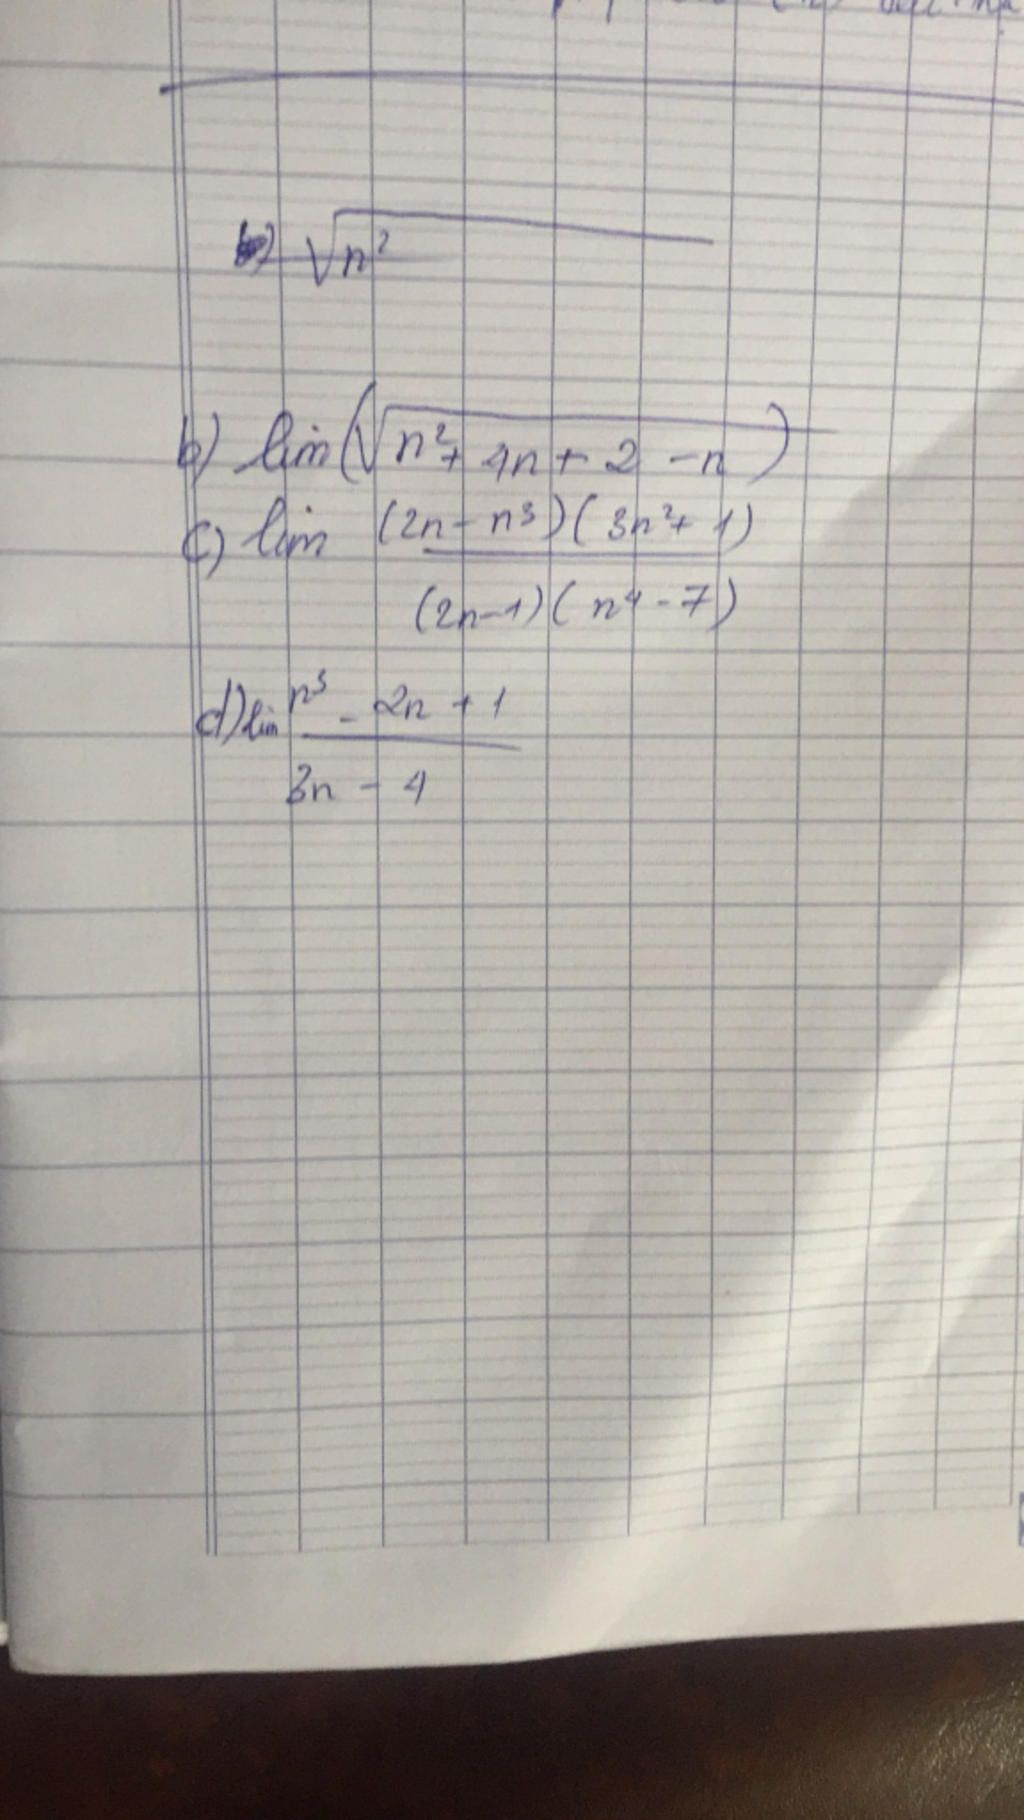 b) √n²
b) lim(√n² + 4n + 2 - n)
c) lim (2n - n³)(3n² + 1)
(2n-1)(n⁴ - 7)
d) lim n³ - 2n + 1
3n - 4